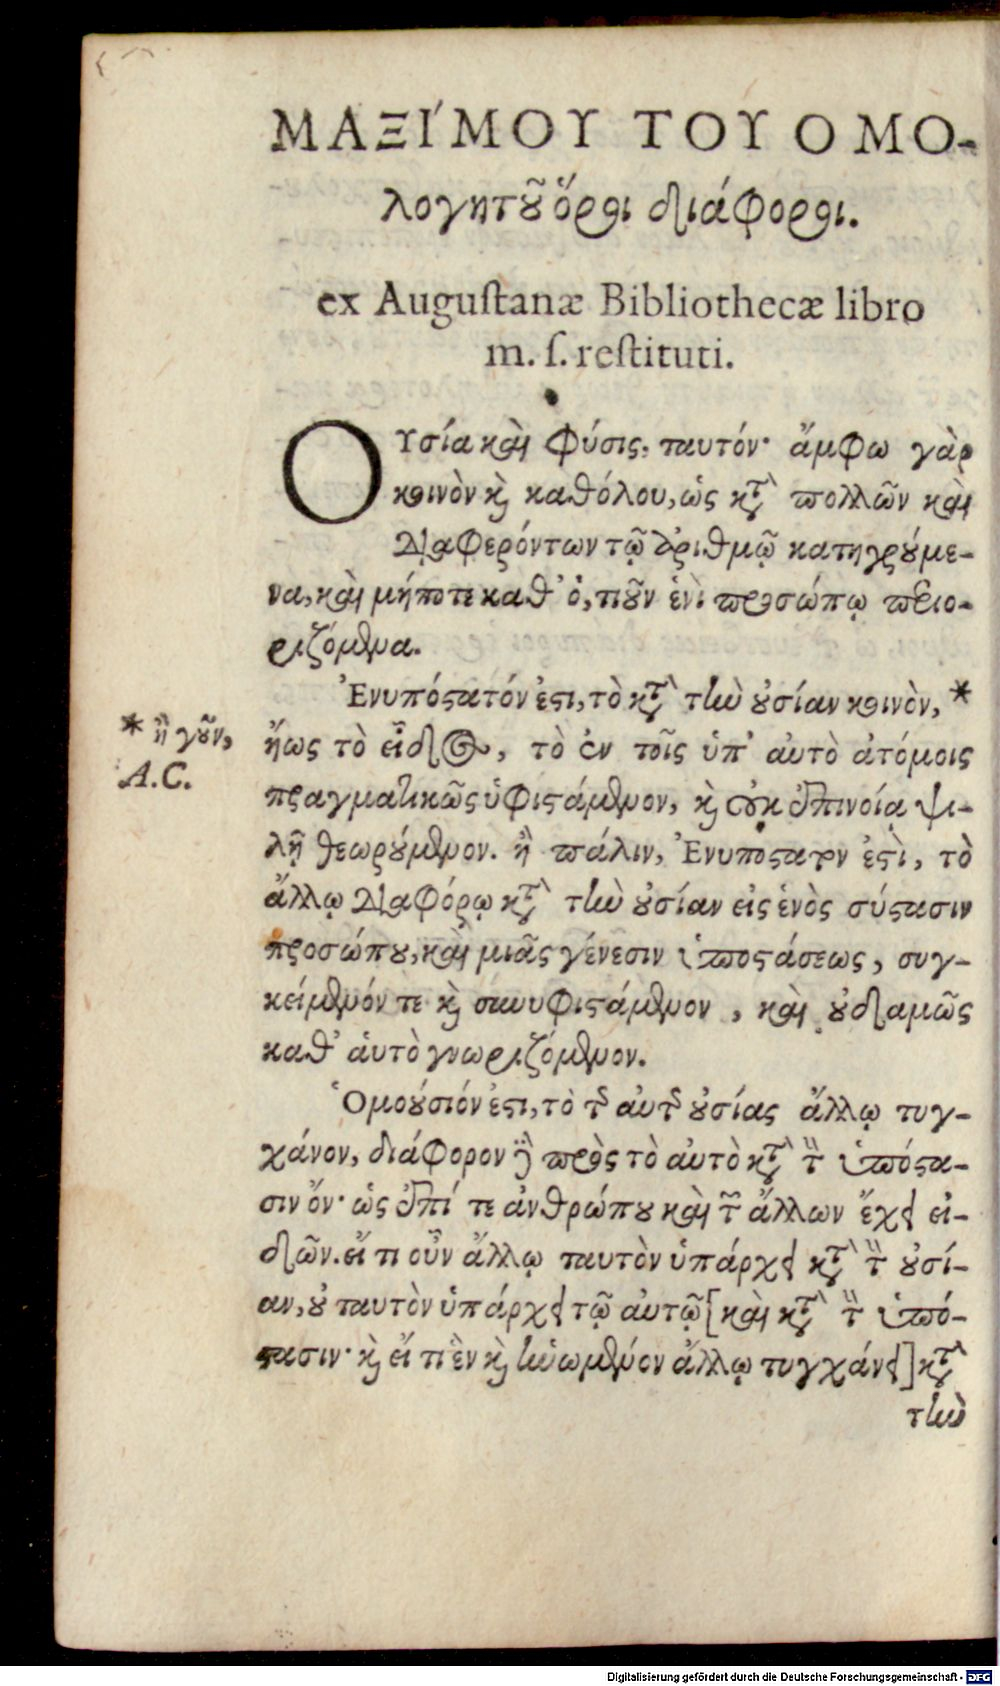 ΜΑΞΊΜΟΥ ΤΟΥ ΟΜΟ-
λογητοῦ ὅροι διάφοροι.
ex Augustanæ Bibliothecæ libro
m. ſ. reſtituti.
ΟΥσία καὶ Φύσις, ταυτόν· ἄμφω γὰρ
κοινὸν καὶ καθόλου, ὡς κατὰ πολλῶν καὶ
διαφερόντων τῷ ἀριθμῷ κατηγορούμε-
να, καὶ μήποτε καθ' ὁ, τιοῦν ἑνὶ προσώπῳ περιο-
ριζόμενα.
Ἐνυπόστατόν ἐστι, τὸ κατὰ τὴν οὐσίαν κοινὸν, *
ἤως τὸ εἶδος, τὸ ἐν τοῖς ὑπ' αὐτὸ ἀτόμοις
πραγματικῶς ὑφιστάμενον, καὶ οὐκ ἐπινοίᾳ ψι-
λῇ θεωρούμενον. ἢ πάλιν, Ἐνυπόστατόν ἐστὶ, τὸ
ἄλλῳ διαφόρῳ κατὰ τὴν οὐσίαν εἰς ἑνὸς σύστασιν
προσώπου, καὶ μιᾶς γένεσιν ὑποστάσεως, συγ-
κείμενόν τε καὶ συνυφιστάμενον, καὶ οὐδαμῶς
καθ' αὑτὸ γνωριζόμενον.
Ὁμούσιόν ἐστι, τὸ τῆς αὐτῆς οὐσίας ἄλλῳ τυγ-
χάνον, διάφορον δὲ πρὸς τὸ αὐτὸ κατὰ τὴν ὑπόστα-
σιν ὄν· ὡς ἐπί τε ἀνθρώπου καὶ τῶν ἄλλων ἔχει εἰ-
δῶν. εἴ τι οὖν ἄλλῳ ταυτὸν ὑπάρχει κατὰ τὴν οὐσί-
αν, οὐ ταυτὸν ὑπάρχει τῷ αὐτῷ [καὶ κατὰ τὴν ὑπό-
στασιν· καὶ εἴ τι ἓν καὶ ἡνωμένον ἄλλῳ τυγχάνει] κατὰ
τὴν
* ἢ γοῦν,
A.C.
Digitalisierung gefördert durch die Deutsche Forschungsgemeinschaft - DFG